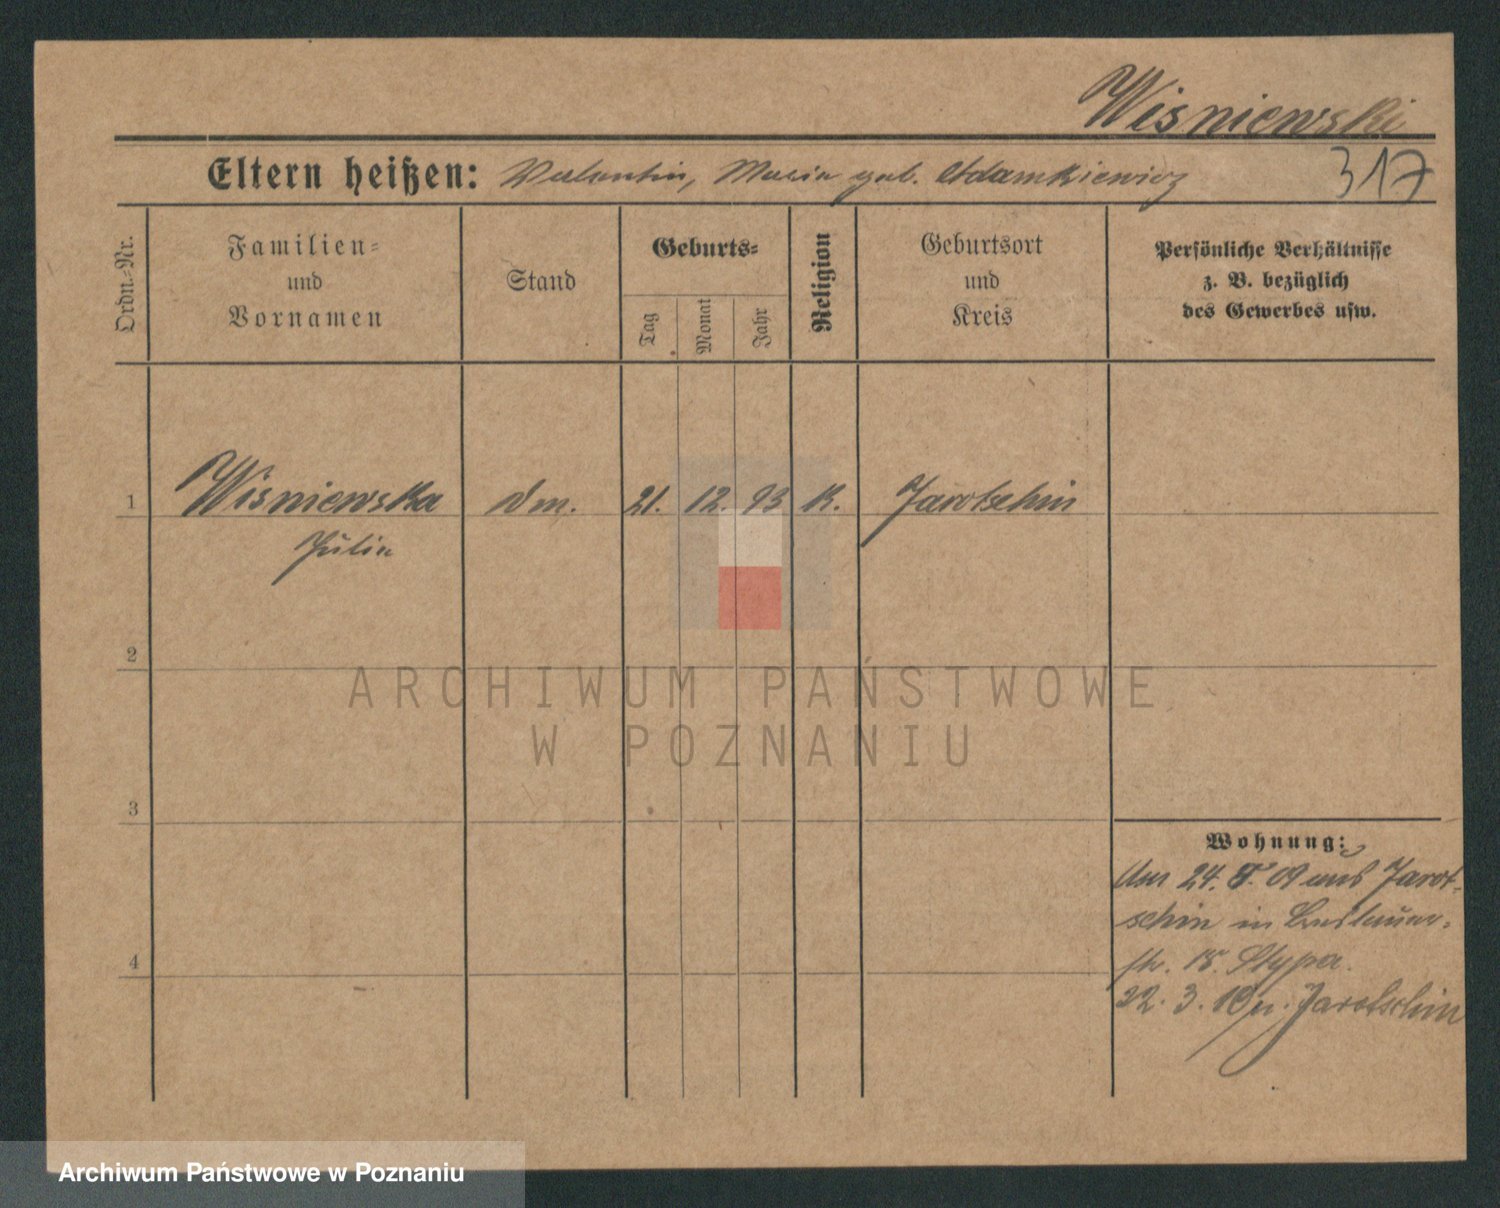 Wisniewski
Eltern heißen: Valentin, Maria geb. Adamkiewicz
317
Ordn.-Nr.
Familien-
und
Vornamen
Stand
Geburts-
Tag
Monat
Jahr
Religion
Geburtsort
und
Kreis
Persönliche Verhältnisse
z. B. bezüglich
des Gewerbes usw.
1 Wisniewska 21. 12. 93 K. Jarotschin
Julia
2
3
4
Wohnung:
24. 09 aus Jarot-
schin in
str. 18. Stypa.
22. 3. 10 n. Jarotschin
ARCHIWUM PAŃSTWOWE
W POZNANIU
Archiwum Państwowe w Poznaniu